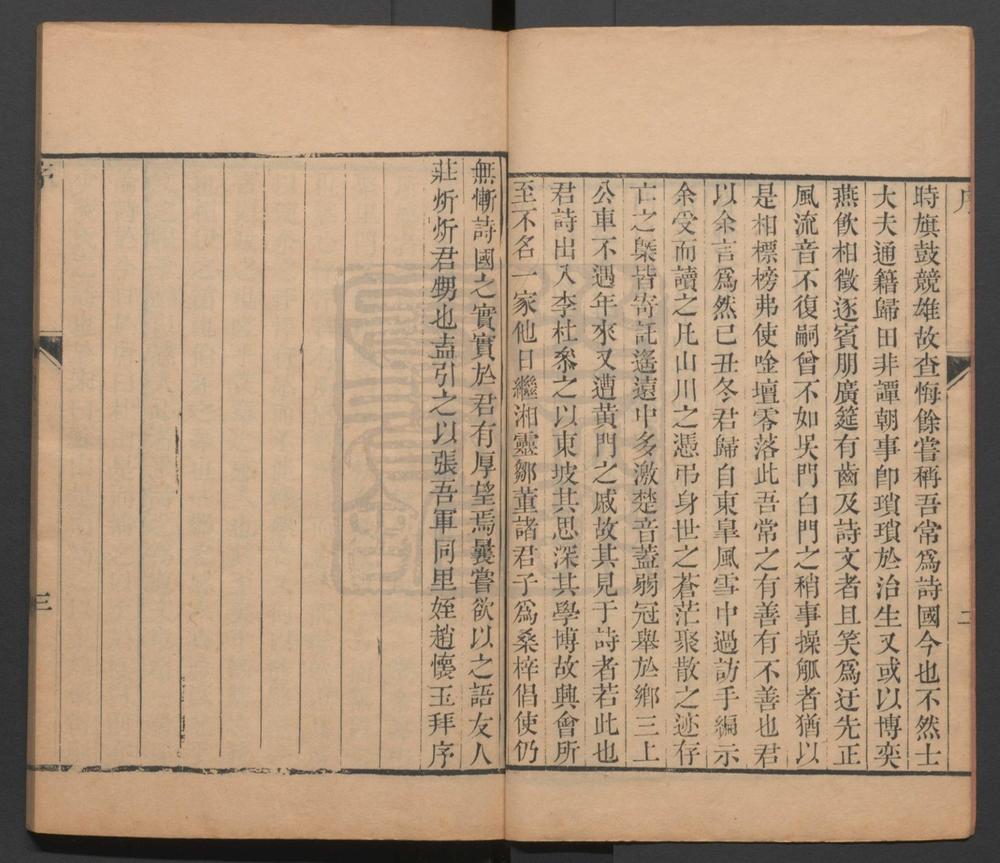 序
二
時旗鼓競雄故查悔餘嘗稱吾常爲詩國今也不然士
大夫通籍歸田非譚朝事卽瑣瑣於治生又或以博奕
燕飲相徵逐賓朋廣筵有齒及詩文者且笑爲迂先正
風流音不復嗣曾不如吳門白門之稍事操觚者猶以
是相標榜弗使唫壇零落此吾常之有善有不善也君
以余言爲然己丑冬君歸自東臯風雪中過訪手編示
余受而讀之凡山川之憑弔身世之蒼茫聚散之迹存
亡之槩皆寄託遙遠中多激楚音蓋弱冠舉於鄉三上
公車不遇年來又遭黃門之戚故其見于詩者若此也
君詩出入李杜叅之以東坡其思深其學博故興會所
至不名一家他日繼湘靈鄒董諸君子爲桑梓倡使仍
無慚詩國之實實於君有厚望焉曩嘗欲以之語友人
莊炘炘君甥也盍引之以張吾軍同里姪趙懷玉拜序
序
三